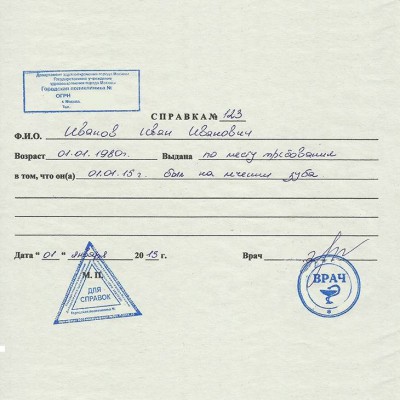 Департамент здравоохранения города Москвы
Государственное учреждение
здравоохранения города Москвы
Городская поликлиника №
ОГРН
г. Москва
Тел.
СПРАВКА № 123
Ф.И.О. Иванов Иван Иванович
Возраст 01.01.1980г. Выдана по месту требования
в том, что он(а) 01.01.15г. был на лечении зуба
Дата "01" января 2015 г. Врач
М. П.
ДЛЯ
СПРАВОК
Городская поликлиника №
ВРАЧ